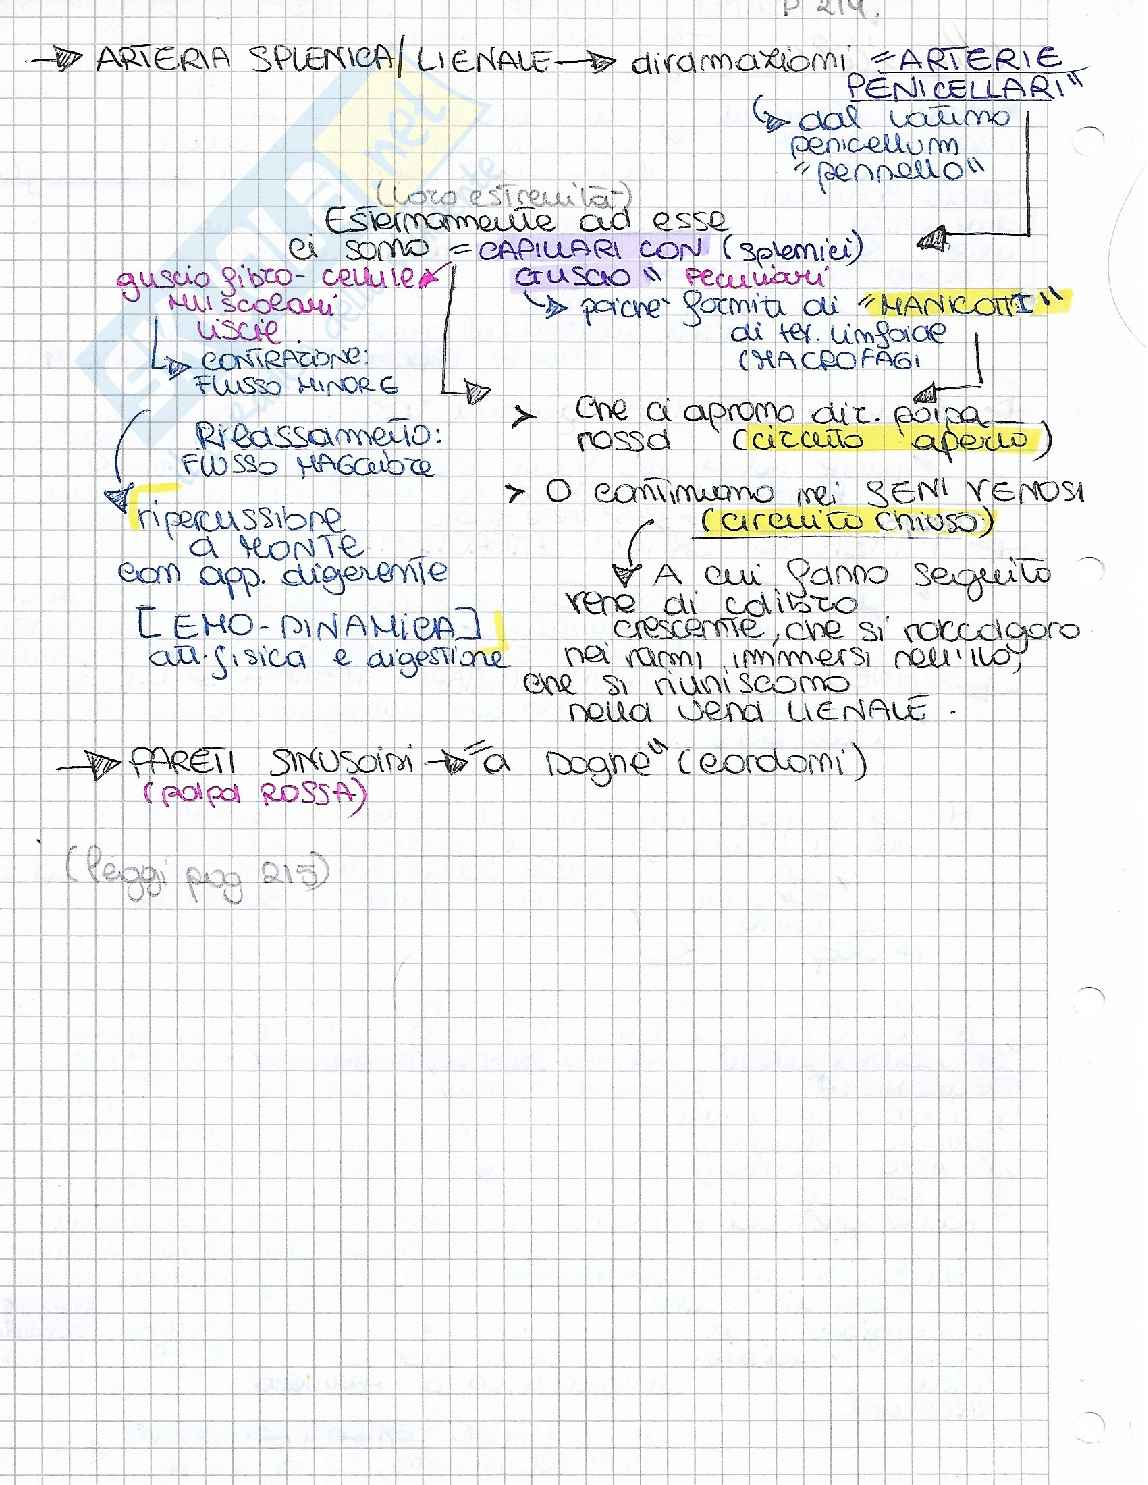 P 214.
ARTERIA SPLENICA/LIENALE → diramazioni "ARTERIE
PENICELLARI"
dal latino
penicellum
"pennello"
(loro estremità)
Esternamente ad esse
ci sono = CAPILLARI CON (splenici)
GUSCIO" peculiari
guscio fibro-cellule
muscolari
lisce
poiché forniti di "MANICOTTI"
di tes. linfoide
(MACROFAGI
CONTRAZIONE:
FLUSSO MINORE
> che ci aprono dir. polpa
rossa (circuito aperto)
Rilassamento:
FLUSSO MAGGIORE
> O continuano nei SENI VENOSI
(circuito chiuso)
ripercussione
a MONTE
con app. digerente
[EMO-DINAMICA]
att. fisica e digestione
A cui fanno seguito
vene di calibro
crescente, che si raccolgono
nei rami immersi nell'ilo,
che si riuniscono
nella vena LIENALE.
→ PARETI SINUSOIDI → "a Doghe" (cordoni)
(polpa ROSSA)
(leggi pag 215)